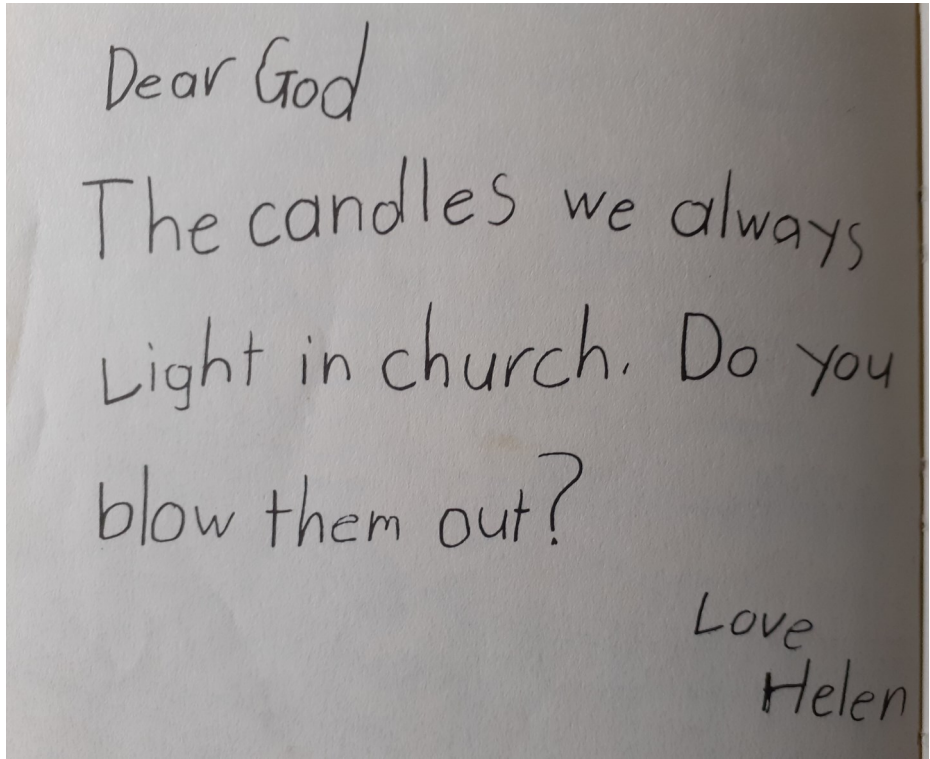 Dear God
The candles we always
Light in church. Do you
blow them out?
Love
Helen